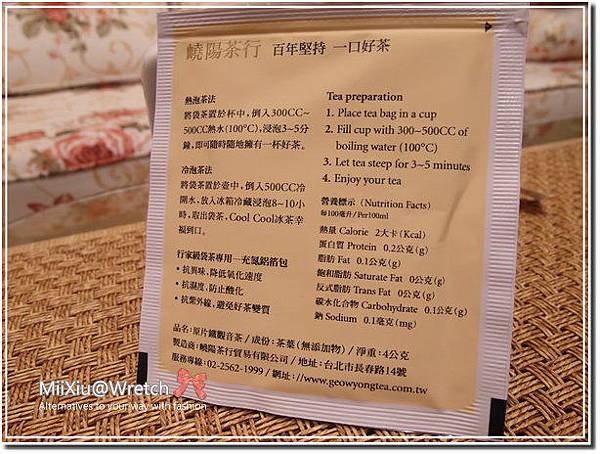 嶢陽茶行 百年堅持 一口好茶
熱泡茶法
將袋茶置於杯中，倒入300CC~
500CC熱水(100°C)，浸泡3~5分
鐘，即可隨時隨地擁有一杯好茶。
冷泡茶法
將袋茶置於壺中，倒入500CC冷
開水，放入冰箱冷藏浸泡8~10小
時，取出袋茶，Cool Cool冰茶幸
福到口。
行家級袋茶專用─充氮鋁箔包
• 抗異味，降低氧化速度
• 抗濕度，防止酸化
• 抗紫外線，避免好茶變質
Tea preparation
1. Place tea bag in a cup
2. Fill cup with 300~500CC of
boiling water (100°C)
3. Let tea steep for 3~5 minutes
4. Enjoy your tea
營養標示 (Nutrition Facts)
每100毫升/Per100ml
熱量 Calorie 2大卡(Kcal)
蛋白質 Protein 0.2公克(g)
脂肪 Fat 0.1公克(g)
飽和脂肪 Saturate Fat 0公克(g)
反式脂肪 Trans Fat 0公克(g)
碳水化合物 Carbohydrate 0.1公克(g)
鈉 Sodium 0.1毫克(mg)
品名：原片鐵觀音茶/成份：茶葉(無添加物)/淨重：4公克
製造商：嶢陽茶行貿易有限公司/地址：台北市長春路14號
服務專線：02-2562-1999/網址://www.geowyongtea.com.tw
MiiXiu@Wretch
Alternatives to your way with fashion